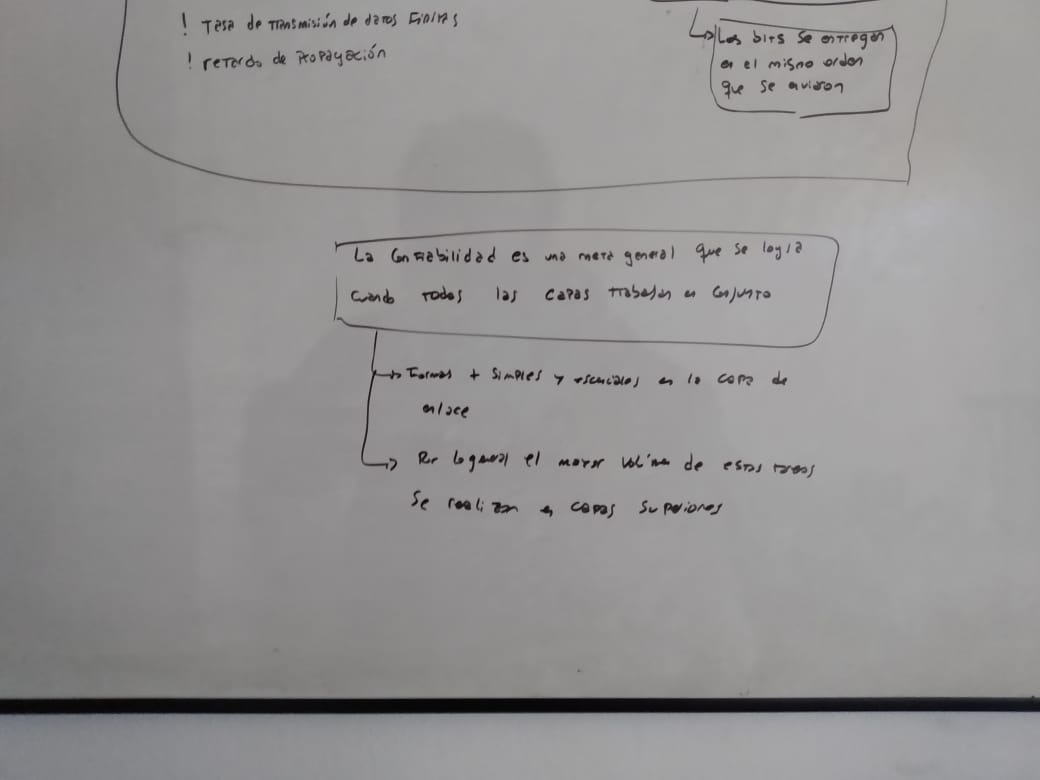 ! Tasa de Transmisión de datos Finitas
! retardo de Propagación
Los bits se entregan
en el mismo orden
que se enviaron
La Confiabilidad es una meta general que se logra
cuando todas las capas trabajan en conjunto
Formas + simples y esenciales en la capa de
enlace
Por lo general el mayor volúmen de estas tareas
Se realizan en capas Superiores